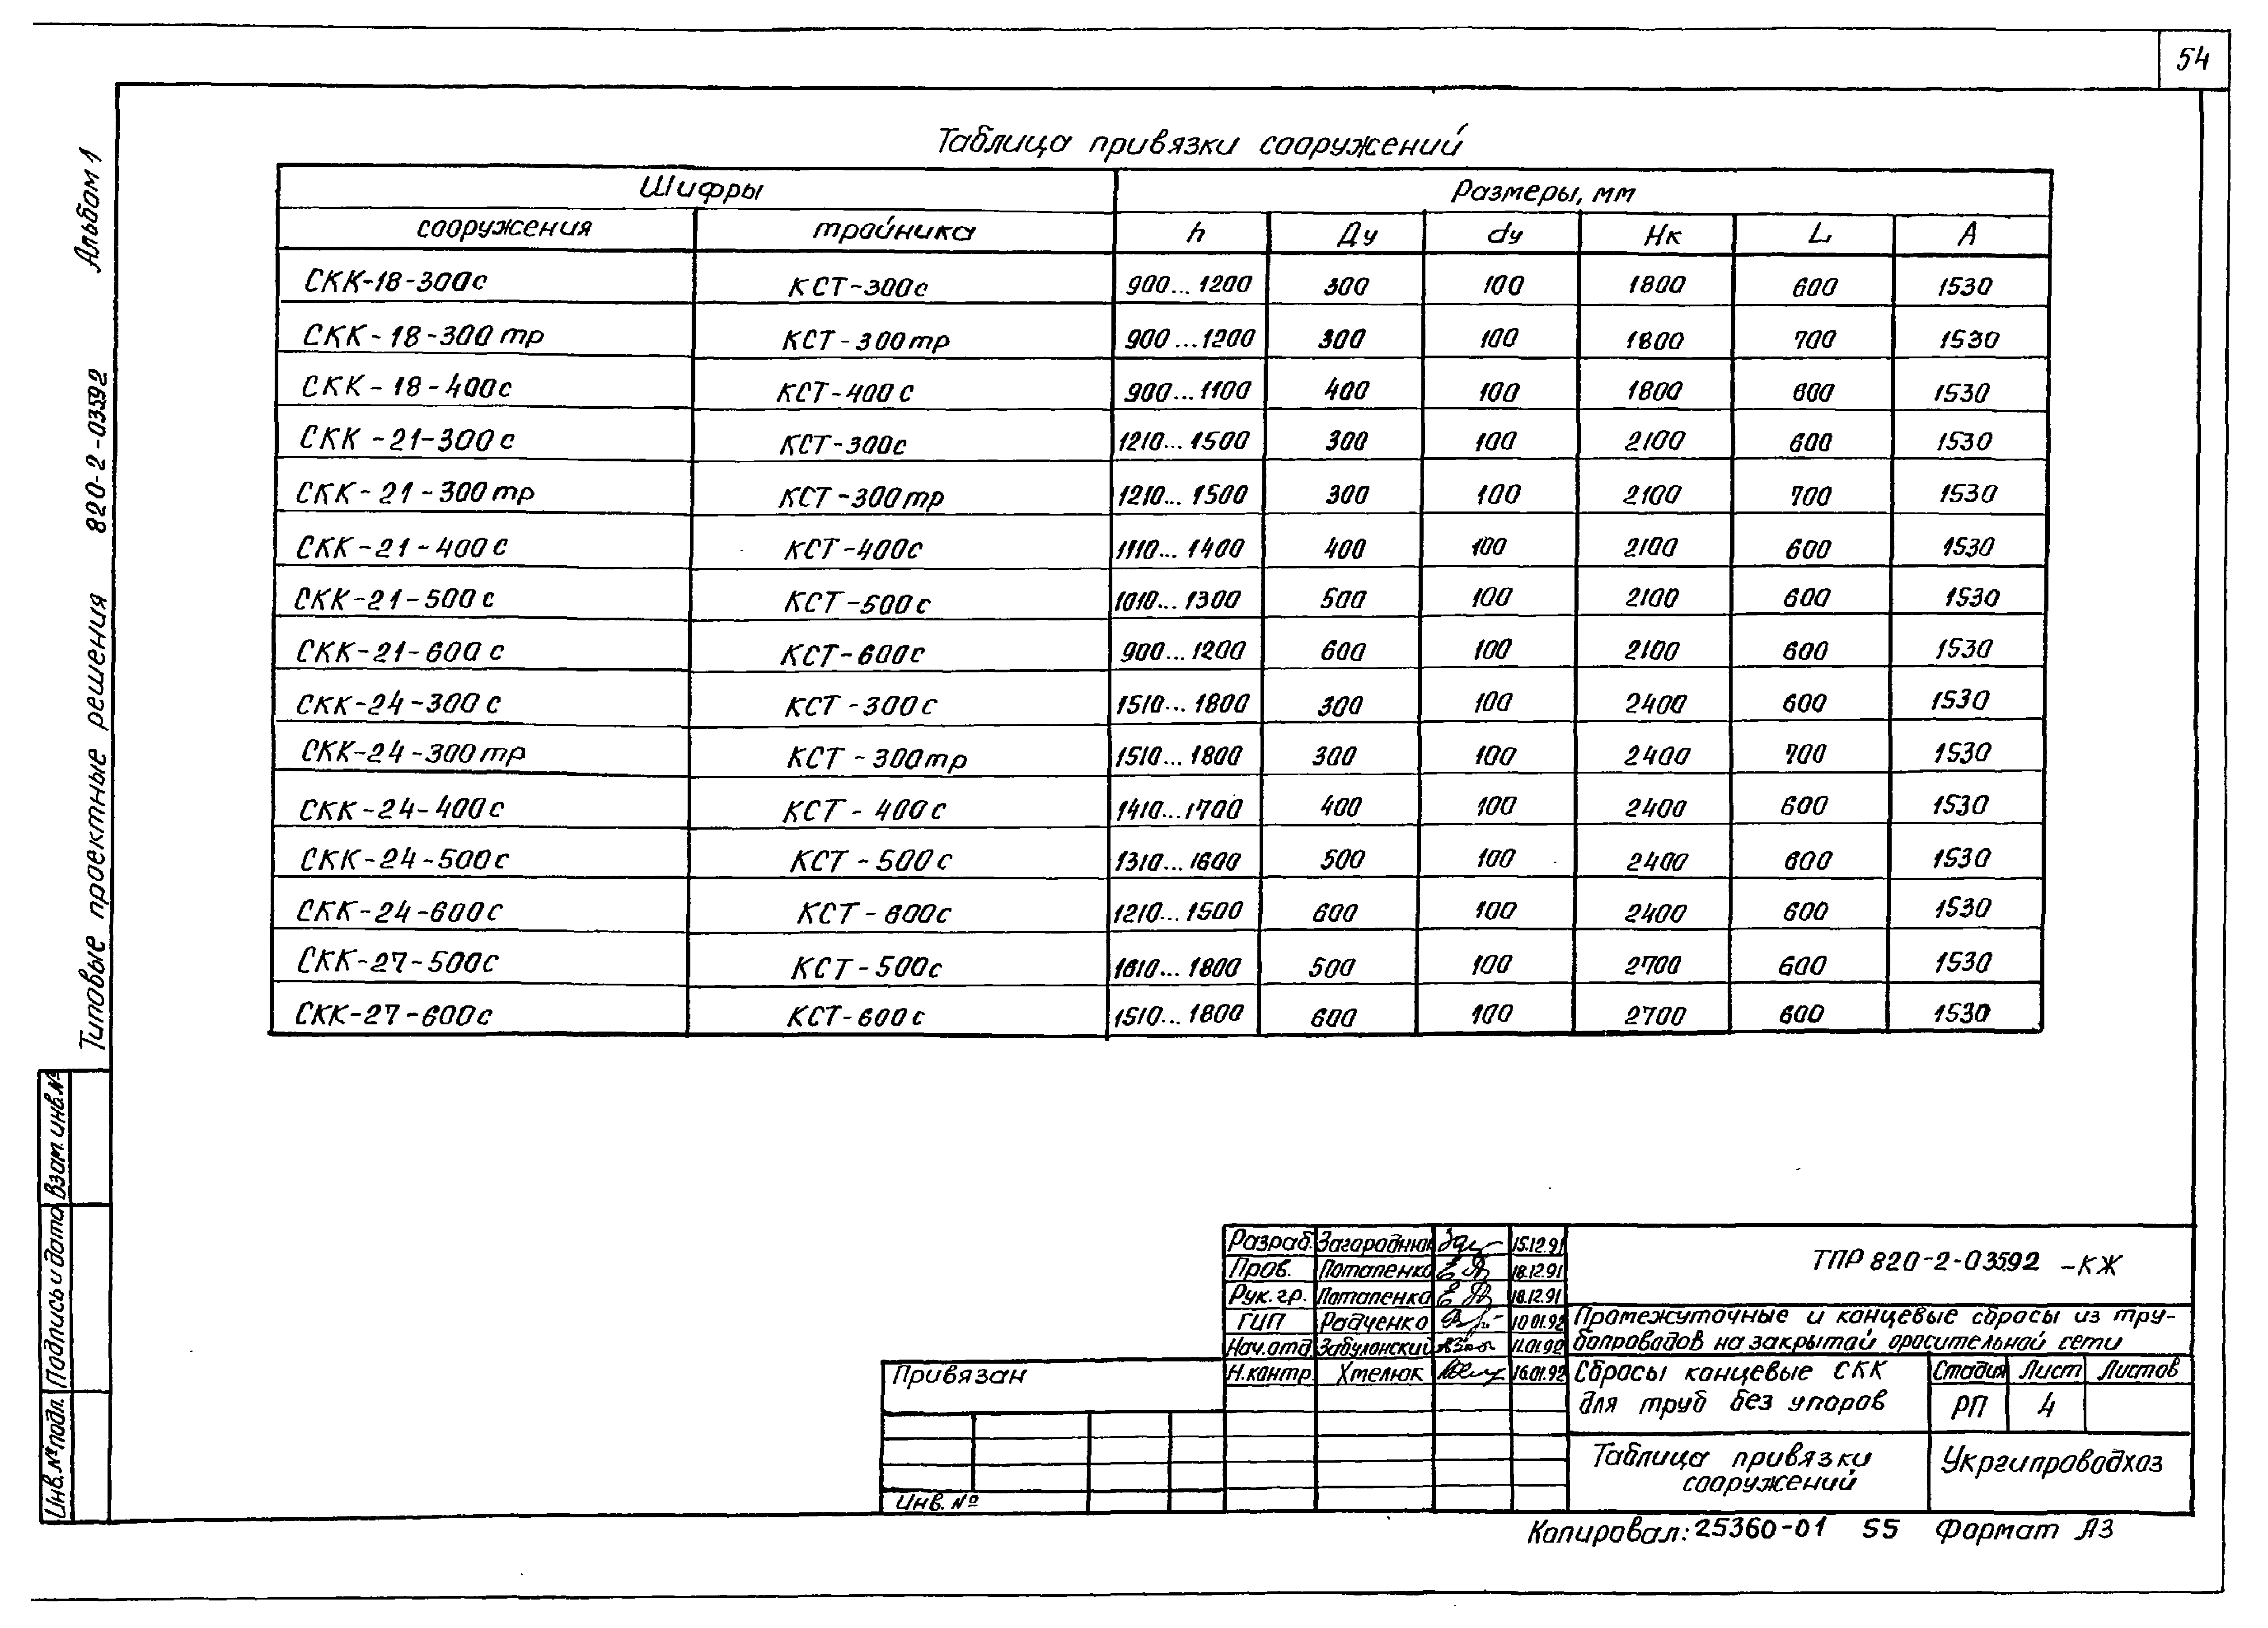 54
Альбом 1
Типовые проектные решения 820-2-03592
Таблица привязки сооружений
Шифры Размеры, мм
сооружения тройника h Ду dу Нк L А
СКК-18-300с КСТ-300с 900...1200 300 100 1800 600 1530
СКК-18-300тр КСТ-300тр 900...1200 300 100 1800 700 1530
СКК-18-400с КСТ-400с 900...1100 400 100 1800 600 1530
СКК-21-300с КСТ-300с 1210...1500 300 100 2100 600 1530
СКК-21-300тр КСТ-300тр 1210...1500 300 100 2100 700 1530
СКК-21-400с КСТ-400с 1110...1400 400 100 2100 600 1530
СКК-21-500с КСТ-500с 1010...1300 500 100 2100 600 1530
СКК-21-600с КСТ-600с 900...1200 600 100 2100 600 1530
СКК-24-300с КСТ-300с 1510...1800 300 100 2400 600 1530
СКК-24-300тр КСТ-300тр 1510...1800 300 100 2400 700 1530
СКК-24-400с КСТ-400с 1410...1700 400 100 2400 600 1530
СКК-24-500с КСТ-500с 1310...1600 500 100 2400 600 1530
СКК-24-600с КСТ-600с 1210...1500 600 100 2400 600 1530
СКК-27-500с КСТ-500с 1610...1800 500 100 2700 600 1530
СКК-27-600с КСТ-600с 1510...1800 600 100 2700 600 1530
Взам. инв. №
Подпись и дата
Инв. № подл.
Разраб. Загороднюк 15.12.91
Пров. Потапенко 18.12.91
Рук. гр. Потапенко 18.12.91
ГИП Радченко 10.01.92
Нач. отд. Забулонский 11.01.92
Н. контр. Хмелюк 16.01.92
ТПР 820-2-03592 -КЖ
Промежуточные и концевые сбросы из тру-
бопроводов на закрытой оросительной сети
Сбросы концевые СКК
для труб без упоров
Стадия Лист Листов
РП 4
Таблица привязки
сооружений
Укргипроводхоз
Привязан
Инв. №
Копировал: 25360-01 55 Формат А3